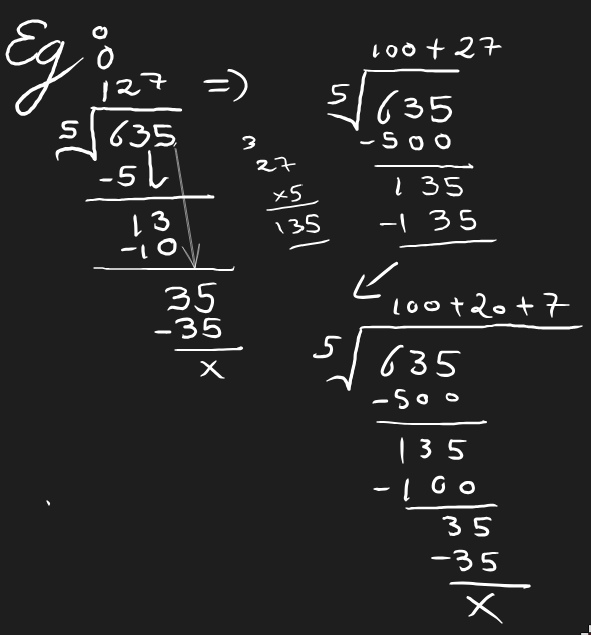 Eg :
127 =>
5 635
-5
13
-10
35
-35
x
3
27
x5
135
100 + 27
5 635
-500
135
-135
100+20+7
5 635
-500
135
-100
35
-35
x